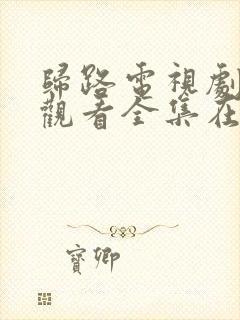 歸路電視劇
觀看全集在
寶卿